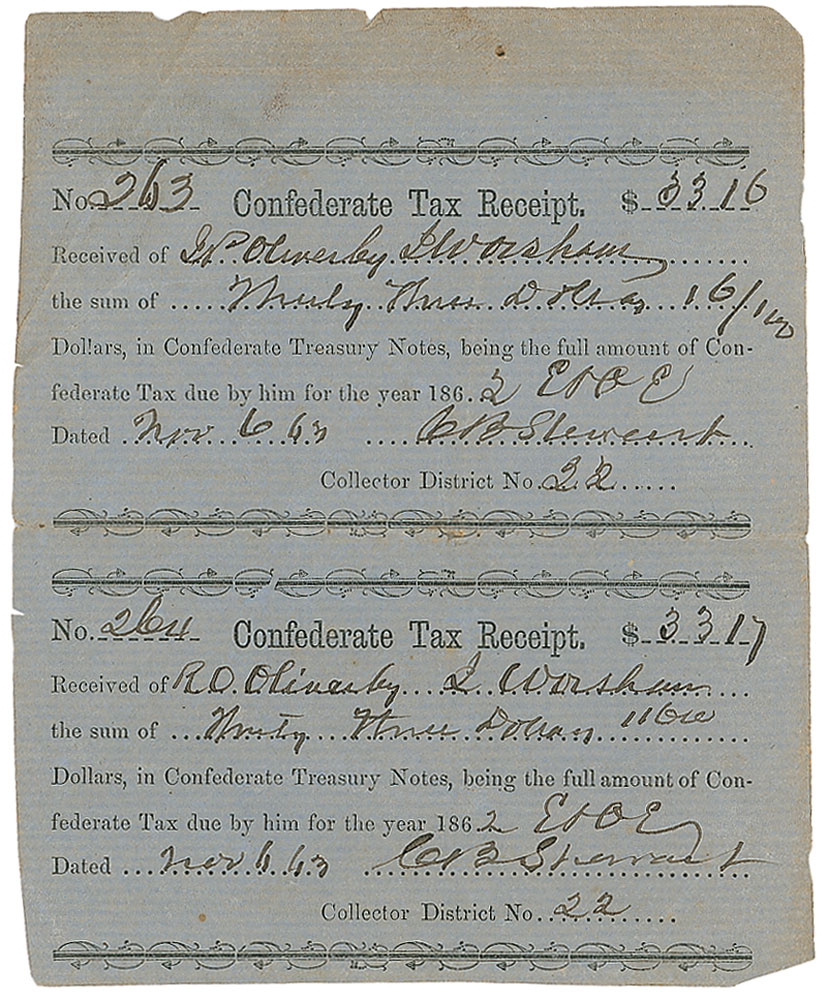 No. 263 Confederate Tax Receipt. $ 33 16
Received of J P. Oliver by J Worsham
the sum of Thirty Three Dollars 16/100
Dollars, in Confederate Treasury Notes, being the full amount of Con-
federate Tax due by him for the year 1862 E & O E
Dated Nov 6 63 C B Stewart
Collector District No. 22
No. 264 Confederate Tax Receipt. $ 33 17
Received of R O. Oliver by J. Worsham
the sum of Thirty Three Dollars
Dollars, in Confederate Treasury Notes, being the full amount of Con-
federate Tax due by him for the year 1862 E & O E
Dated Nov 6 63 C B Stewart
Collector District No. 22